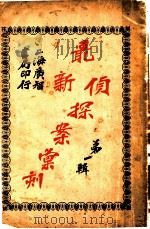 偵探案彙刊
新
第一輯
上海廣智
書局印行